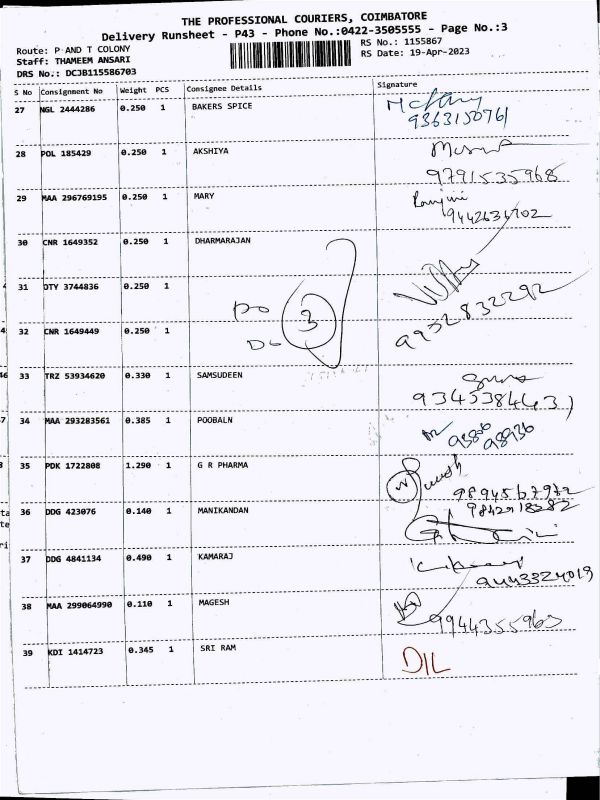 THE PROFESSIONAL COURIERS, COIMBATORE
Delivery Runsheet - P43 - Phone No.:0422-3505555 - Page No.:3
Route: P AND T COLONY
RS No.: 1155867
Staff: THAMEEM ANSARI
RS Date: 19-Apr-2023
DRS No.: DCJB115586703
S No Consignment No Weight PCS Consignee Details Signature
27 NGL 2444286 0.250 1 BAKERS SPICE
9363150761
28 POL 185429 0.250 1 AKSHIYA
9791535968
29 MAA 296769195 0.250 1 MARY Ranjini
9442634702
30 CNR 1649352 0.250 1 DHARMARAJAN
31 OTY 3744836 0.250 1
3
9952832292
32 CNR 1649449 0.250 1
33 TRZ 53934620 0.330 1 SAMSUDEEN
TRZ 53934620
34 MAA 293283561 0.385 1 POOBALN
35 PDK 1722808 1.290 1 G R PHARMA
9894567972
36 DDG 423076 0.140 1 MANIKANDAN
9842918282
37 DDG 4841134 0.490 1 KAMARAJ
9443324019
38 MAA 299064990 0.110 1 MAGESH
9944355963
39 KDI 1414723 0.345 1 SRI RAM DIL